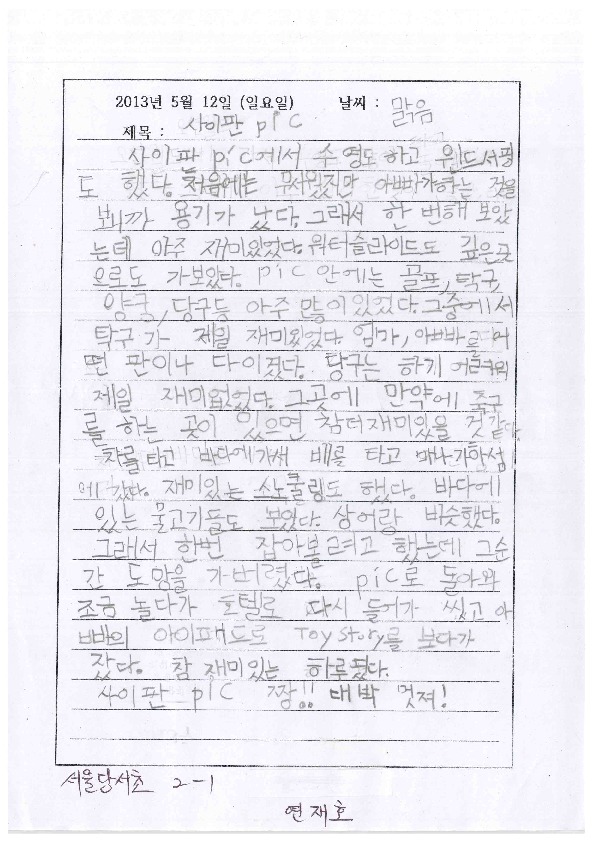 2013년 5월 12일 (일요일) 날씨 : 맑음
제목 : 사이판 pic
사이판 pic에서 수영도 하고 윈드서핑
도 했다. 처음에는 무서웠지만 아빠가하는 것을
보니까 용기가 났다. 그래서 한 번해 보았
는데 아주 재미있었다. 워터슬라이드도 깊은곳
으로도 가보았다. pic 안에는 골프, 탁구,
양궁, 당구등 아주 많이있었다. 그중에서
탁구가 제일 재미있었다. 엄마, 아빠를
떤 판이나 다이겼다. 당구는 하기 어려워
제일 재미없었다. 그곳에 만약에 축구
를 하는 곳이 있으면 참더재미있을 것같다.
차를 타고 바다에가서 배를 타고 마나가하섬
에 갔다. 재미있는 스노쿨링도 했다. 바다에
있는 물고기들도 보았다. 상어랑 비슷했다.
그래서 한번 잡아볼려고 했는데 그순
간 도망을 가버렸다. pic로 돌아와
조금 놀다가 호텔로 다시 들어가 씻고 아
빠의 아이패드로 Toy Story를 보다가
잤다. 참 재미있는 하루였다.
사이판 pic 짱!! 대박 멋져!
서울당서초 2-1
연재호